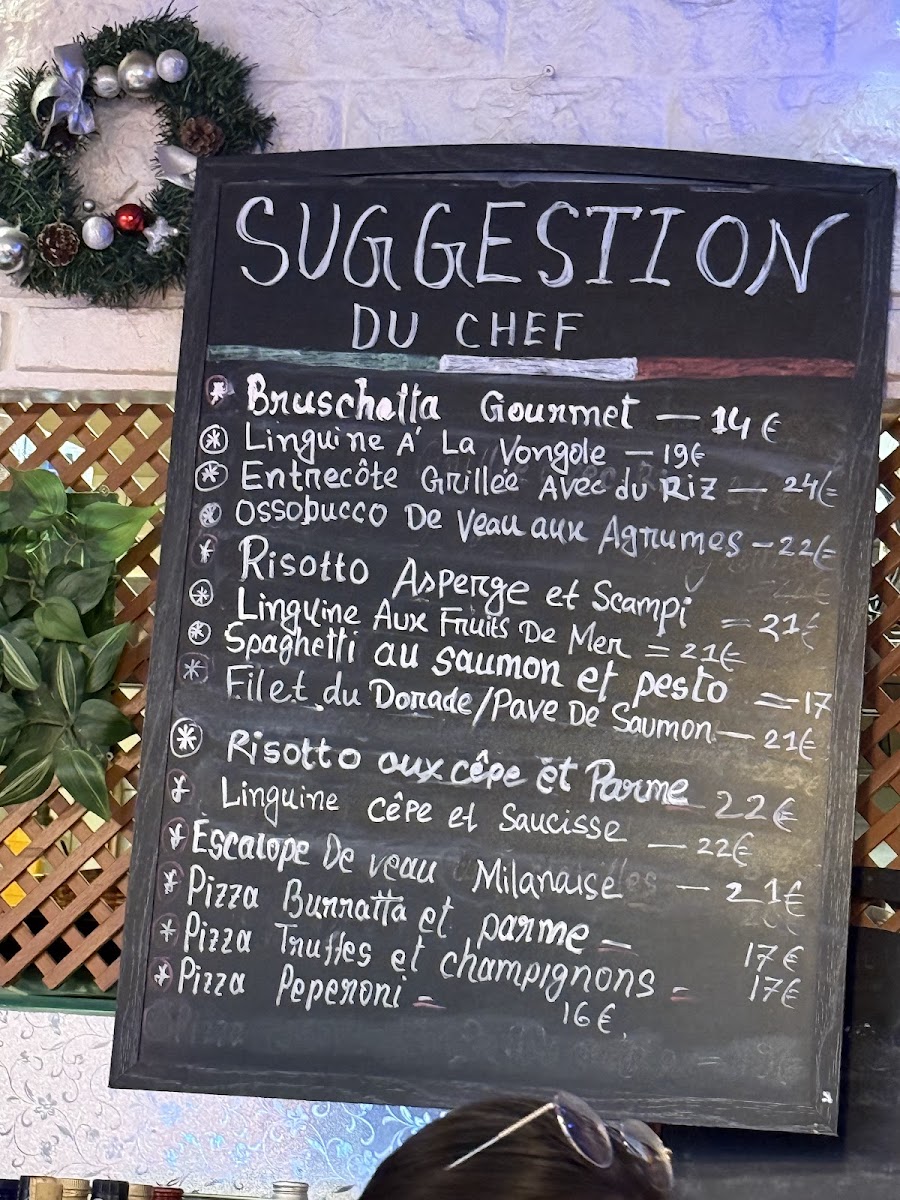 SUGGESTION
DU CHEF
* Bruschetta Gourmet — 14€
* Linguine A' La Vongole — 19€
* Entrecôte Grillée Avec du Riz — 24€
* Ossobucco De Veau aux Agrumes — 22€
* Risotto Asperge et Scampi = 21€
* Linguine Aux Fruits De Mer = 21€
* Spaghetti au saumon et pesto = 17
* Filet du Dorade/Pave De Saumon — 21€
* Risotto aux cêpe et Parme — 22€
* Linguine cêpe et Saucisse — 22€
* Escalope De veau Milanaise — 21€
* Pizza Burratta et parme = 17€
* Pizza Truffes et champignons = 17€
* Pizza Peperoni = 16€